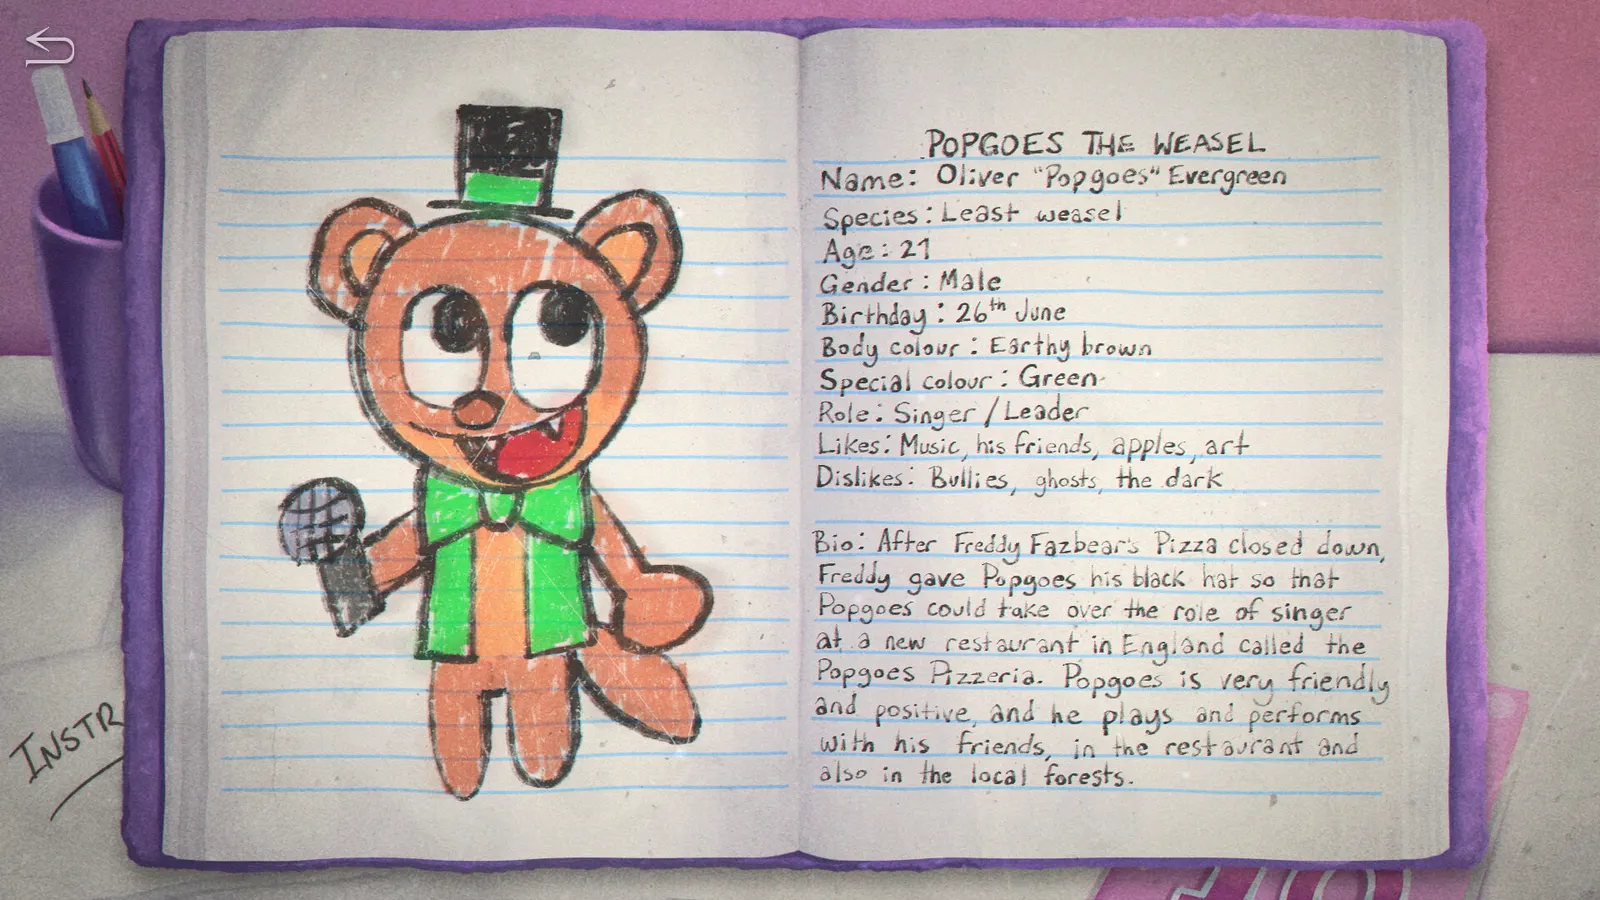 POPGOES THE WEASEL
Name: Oliver "Popgoes" Evergreen
Species: Least weasel
Age: 21
Gender: Male
Birthday: 26th June
Body colour: Earthy brown
Special colour: Green
Role: Singer / Leader
Likes: Music, his friends, apples, art
Dislikes: Bullies, ghosts, the dark
Bio: After Freddy Fazbear's Pizza closed down,
Freddy gave Popgoes his black hat so that
Popgoes could take over the role of singer
at a new restaurant in England called the
Popgoes Pizzeria. Popgoes is very friendly
and positive, and he plays and performs
with his friends, in the restaurant and
also in the local forests.
INSTR